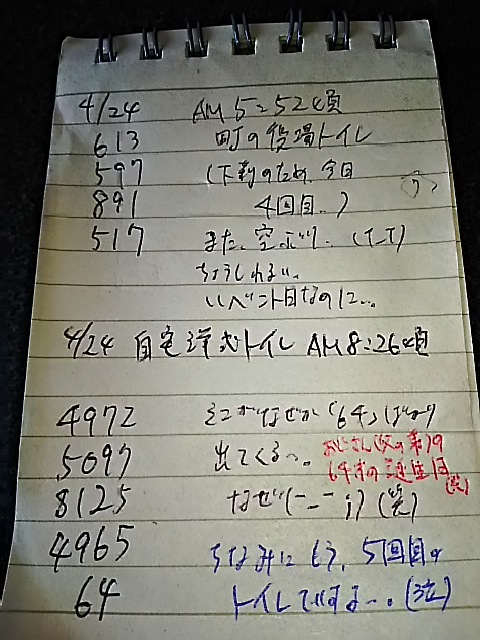 4/24 AM 5:52頃
613 町の役場トイレ
597 (下剤のため、今日
891 4回目..)
517 また、空ぶり.. (T_T)
ちょうしわるい。
いベント日なのに…。
4/24 自宅洋式トイレ AM8:26頃
4972 そこがなぜか「64」ばかり
5097 出てくる〜。 おじさん(父の弟)の
64才の誕生日(笑)
8125 なぜ(-_-;)(笑)
4965 ちなみにもう、5回目の
64 トイレですよ〜。(泣)